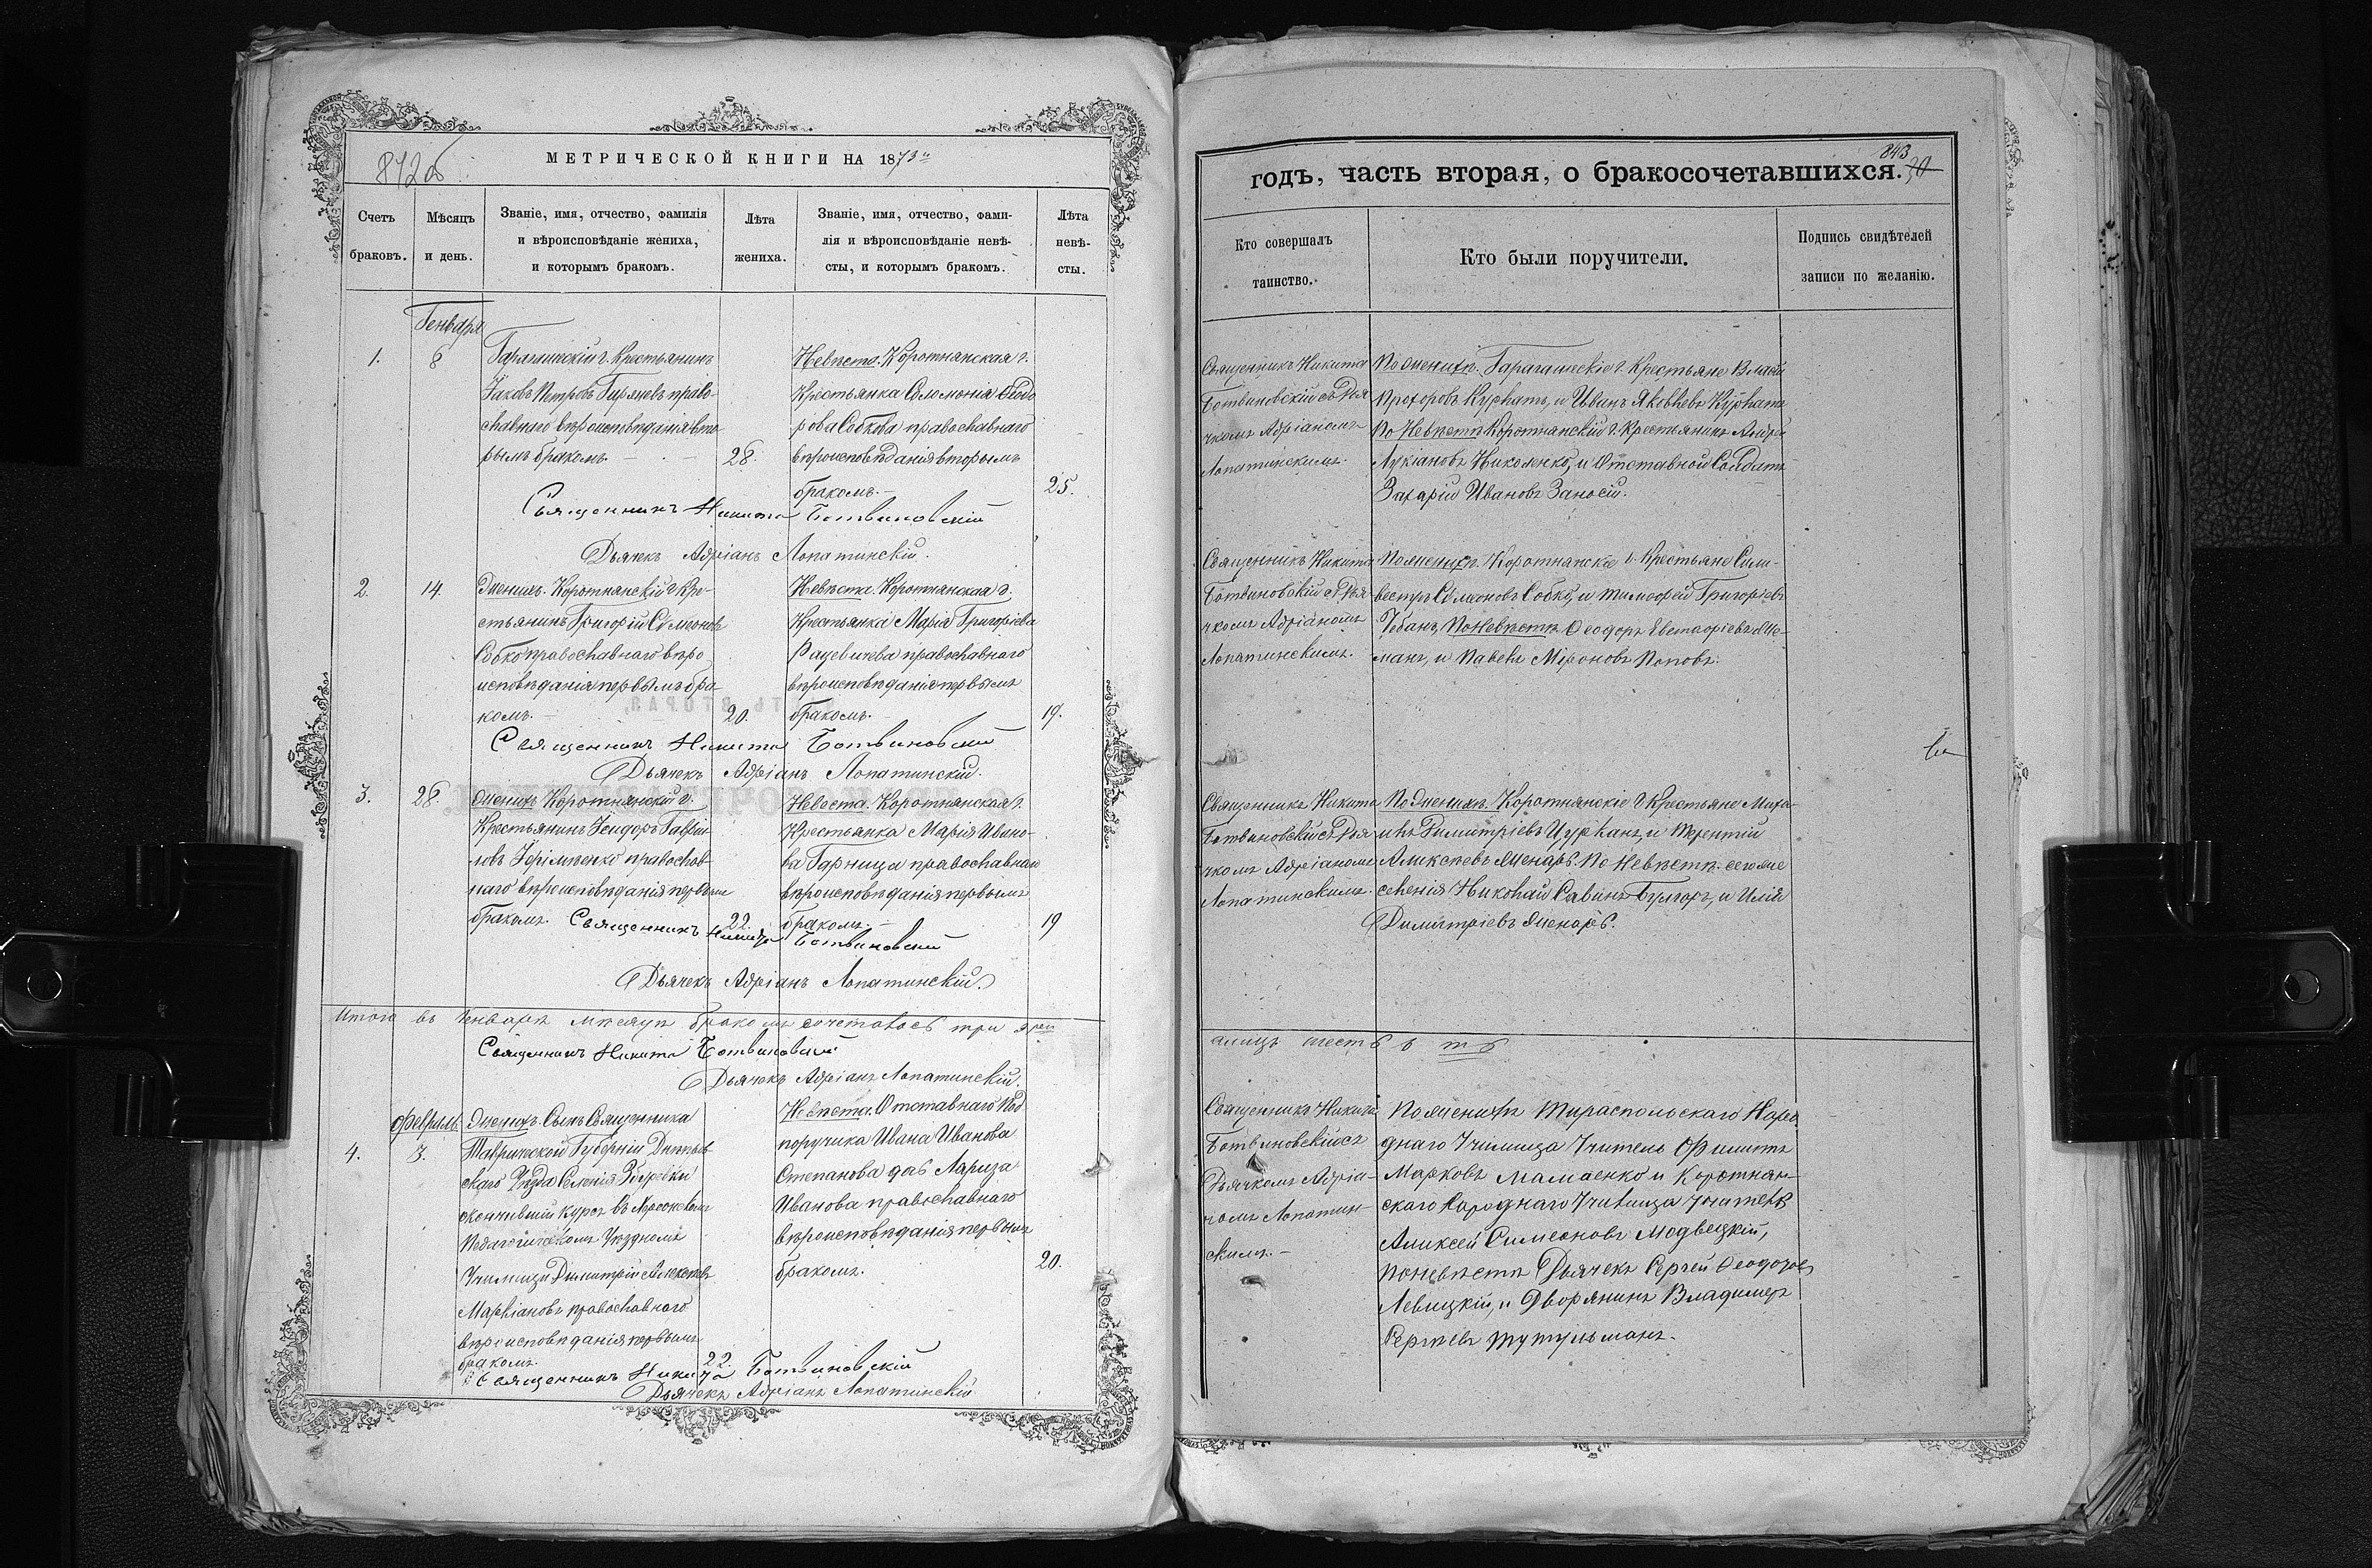 842об
МЕТРИЧЕСКОЙ КНИГИ НА 1873й
Счетъ браковъ.
Мѣсяцъ и день.
Званіе, имя, отчество, фамилія
и вѣроисповѣданіе жениха,
и которымъ бракомъ.
Лѣта жениха.
Званіе, имя, отчество, фами-
лія и вѣроисповѣданіе невѣ-
сты, и которымъ бракомъ.
Лѣта невѣ-
сты.
Генваря
1.
8
крестьянинъ
Іаковъ Петровъ право-
славнаго вѣроисповѣданія вто
рымъ бракомъ.
28.
Невѣста. Коротнянская г.
Крестьянка Соломонія Ѳеодо
рова Собкова православнаго
вѣроисповѣданія вторымъ
бракомъ.
25.
Священникъ Никита Ботвиновскій
Дьячекъ Адріанъ Лопатинскій.
2.
14.
Женихъ. Коротнянскій г. Кре-
стьянинъ Григорій Симеоновъ
Собко православнаго вѣро
исповѣданія первымъ бра
комъ.
20.
Невѣста. Коротнянская г.
Крестьянка Марія Григоріева
Рацевичева православнаго
вѣроисповѣданія первымъ
бракомъ.
19.
Священникъ Никита Ботвиновскій
Дьячекъ Адріанъ Лопатинскій.
3.
28.
Женихъ Коротнянскій г.
Крестьянинъ Ісидоръ Гавріи-
ловъ православ-
наго вѣроисповѣданія первымъ
бракомъ.
22.
Невеста. Коротнянская г.
Крестьянка Марія Ивано-
ва Гарница православнаго
вѣроисповѣданія первымъ
бракомъ.
19
Священникъ Никита Ботвиновскій
Дьячекъ Адріанъ Лопатинскій.
Итого въ Генварѣ мѣсяцѣ бракомъ сочеталось три
Священникъ Никита Ботвиновскій
Дьячекъ Адріанъ Лопатинскій.
Февраль
4.
3.
Женихъ. Сынъ Священника
Таврической Губерніи Днѣпров
скаго Уѣзда Селенія Збурьевки
окончившій курсъ въ Херсонскомъ
Педагогическомъ Уѣздномъ
Училищи Димитрій Алексѣевъ
Маркіановъ православнаго
вѣроисповѣданія первымъ
бракомъ.
22.
Невѣста. Отставнаго Под
поручика Ивана Иванова
Степанова дочь Лариза
Иванова православнаго
вѣроисповѣданія первымъ
бракомъ.
20.
Священникъ Никита Ботвиновскій
Дьячекъ Адріанъ Лопатинскій
годъ, часть вторая, о бракосочетавшихся.
843
30
Кто совершалъ таинство.
Кто были поручители.
Подпись свидѣтелей
записи по желанію.
Священникъ Никита
Ботвиновскій съ Дья
чкомъ Адріаномъ
Лопатинскимъ.
По Женихѣ. Крестьяне Власій
Прохоровъ Курнатъ, и Иванъ Яковлевъ Курнатъ
По Невѣстѣ Коротнянскій г. Крестьянинъ Андрей
Лукіановъ Николенко, и Отставной Солдатъ
Захарій Ивановъ Заносій.
Священникъ Никита
Ботвиновскій съ Дья
чкомъ Адріаномъ
Лопатинскимъ.
По женихѣ. Коротнянскіе г. Крестьяне Сили-
вестръ Симеоновъ Собко, и Тимоѳей Григоріевъ
Чебанъ, По Невѣстѣ Ѳеодоръ
и Павелъ Міроновъ Поповъ.
Священникъ Никита
Ботвиновскій съ Дья
чкомъ Адріаномъ
Лопатинскимъ.
По Женихѣ. Коротнянскіе г. Крестьяне Миха-
илъ Димитріевъ Цурканъ, и Терентій
Алексѣевъ Женаръ. По Невѣстѣ. сегоже
селенія Николай Савинъ Булгоръ, и Илія
Димитріевъ Женаръ.
Священникъ Никита
Ботвиновскій съ
Дьячкомъ Адріа-
номъ Лопатин-
скимъ.
По женихѣ Тираспольскаго Наро
днаго Училища Учитель Филиппъ
Марковъ Мамаенко и Коротнян-
скаго Народнаго Училища Учитель
Аликсѣй Симеоновъ Медвецкій,
По невѣстѣ Дьячекъ Сергей Ѳеодоровъ
Левицкій, и Дворянинъ Владимеръ
Сергѣевъ Тутульманъ.